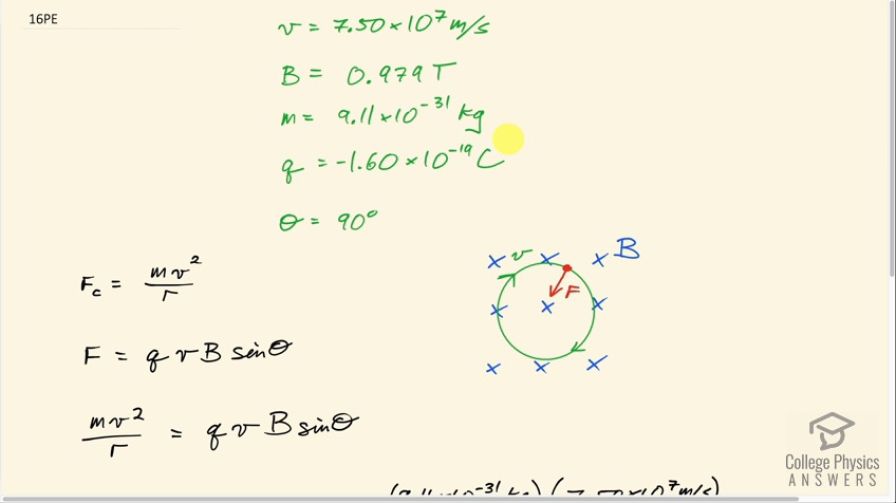 16PE
v = 7.50 × 10⁷ m/s
B = 0.979 T
m = 9.11 × 10⁻³¹ kg
q = -1.60 × 10⁻¹⁹ C
θ = 90°
F_c = mv²/r
F = q v B sinθ
mv²/r = q v B sinθ
× v × × B
F
× × ×
× × ×
(9.11×10⁻³¹ kg) (7.50×10⁷ m/s)
College Physics
ANSWERS